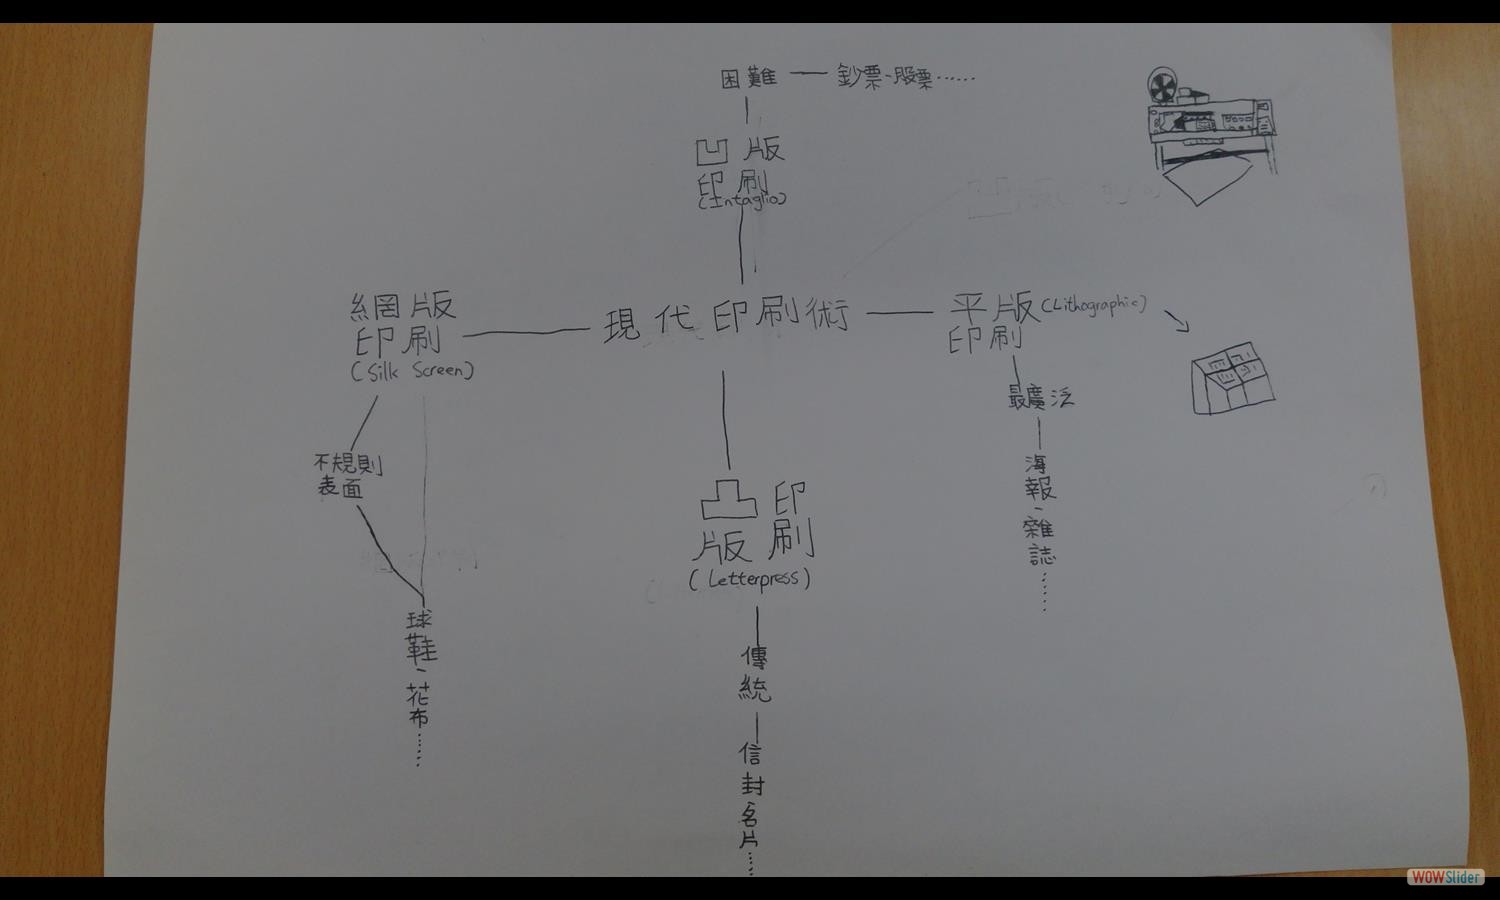 困難 — 鈔票、股票……
凹版
印刷
(Intaglio)
網版
印刷
(Silk Screen)
現代印刷術
平版(Lithographic)
印刷
不規則
表面
球鞋、花布……
最廣泛
海報、雜誌……
凸版印刷
(Letterpress)
傳統
信封名片……
WOWSlider